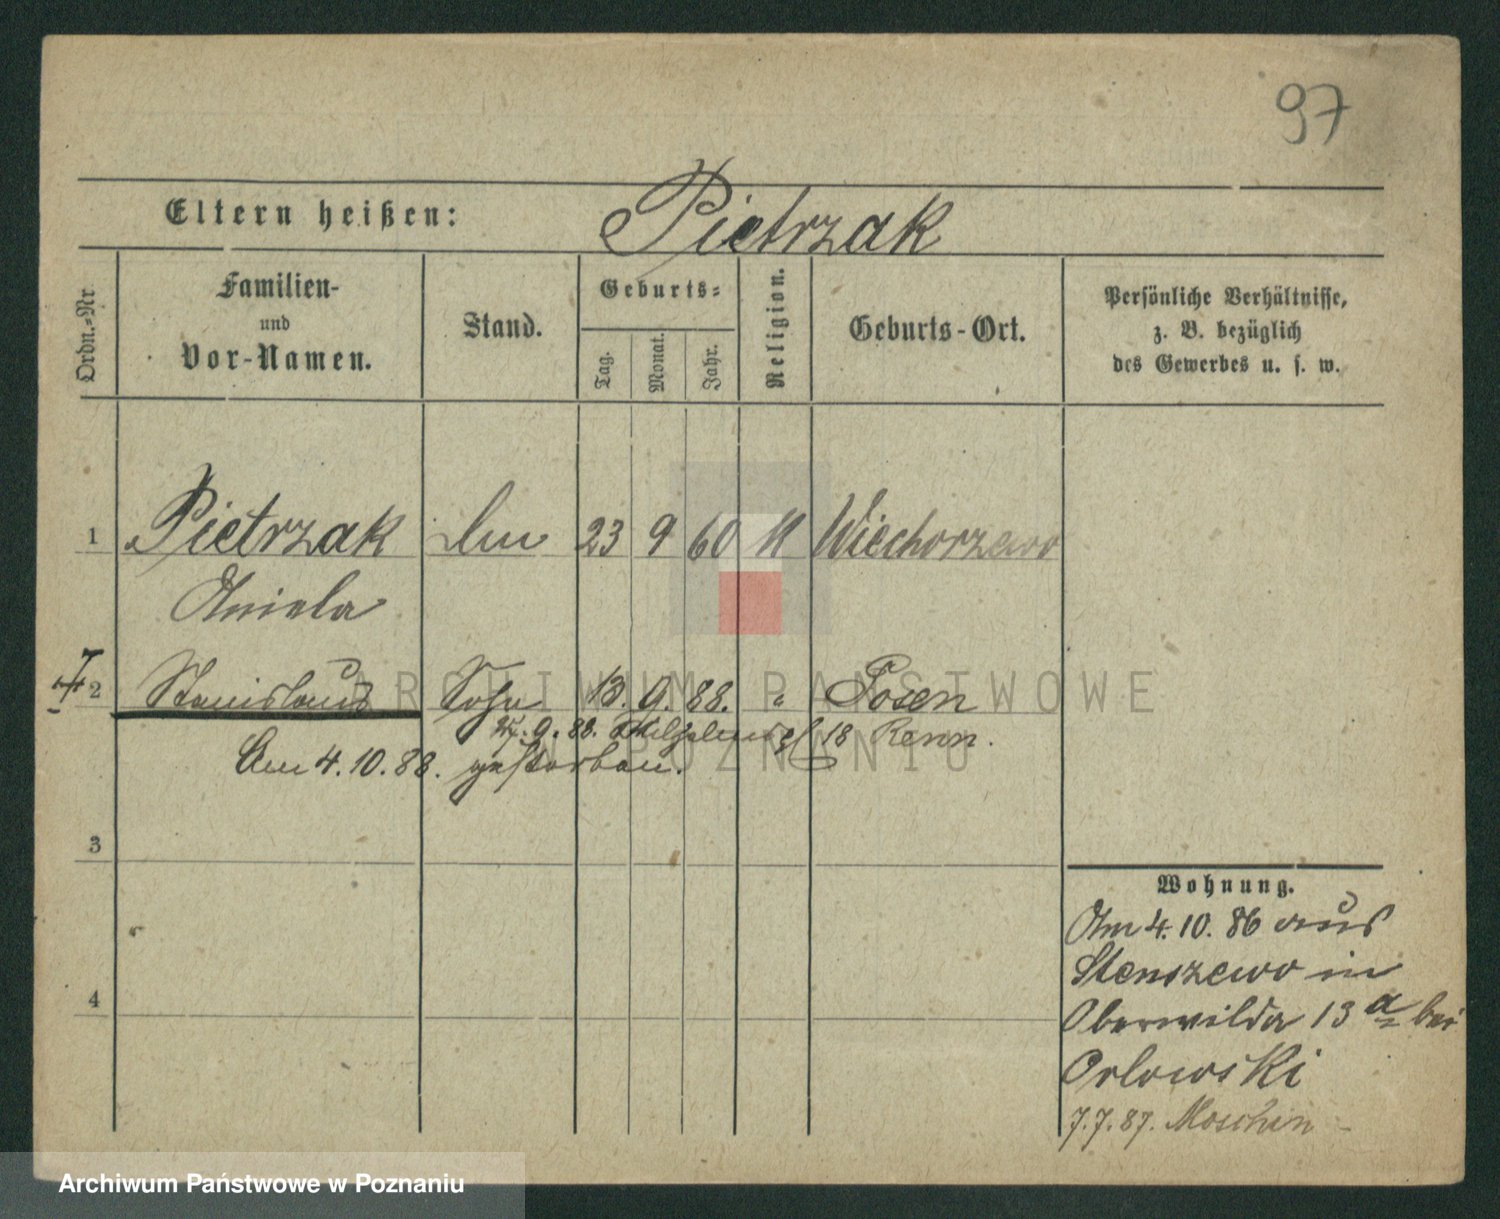 97
Eltern heißen: Pietrzak
Ordn.-Nr.
Familien-
und
Vor-Namen.
Stand.
Geburts-
Tag.
Monat.
Jahr.
Religion.
Geburts-Ort.
Persönliche Verhältnisse,
z. B. bezüglich
des Gewerbes u. s. w.
1 Pietrzak 23 9 60 Wiechorzewo
Aniela
2 Stanislaus Sohn 13. 9. 88. " Posen
9. 88. 18 Renn.
Am 4. 10. 88. gestorben.
3
4
Wohnung.
Am 4. 10. 86 aus
Stenszewo in
Oberwilda 13 a bei
Orlowski
7. 7. 87. Moschin
ARCHIWUM PAŃSTWOWE
W POZNANIU
Archiwum Państwowe w Poznaniu